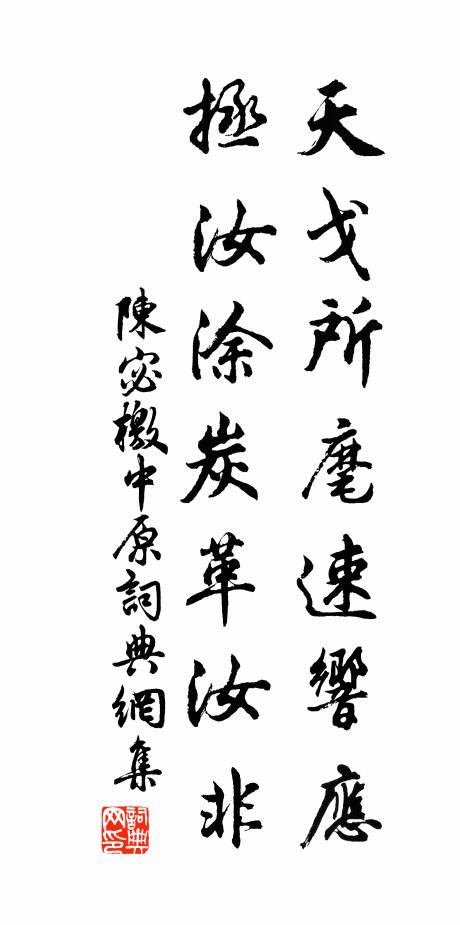 天戈所麾速響應
拯汝涂炭革汝非
陳宓檄中原詞典網集
詞典
网印